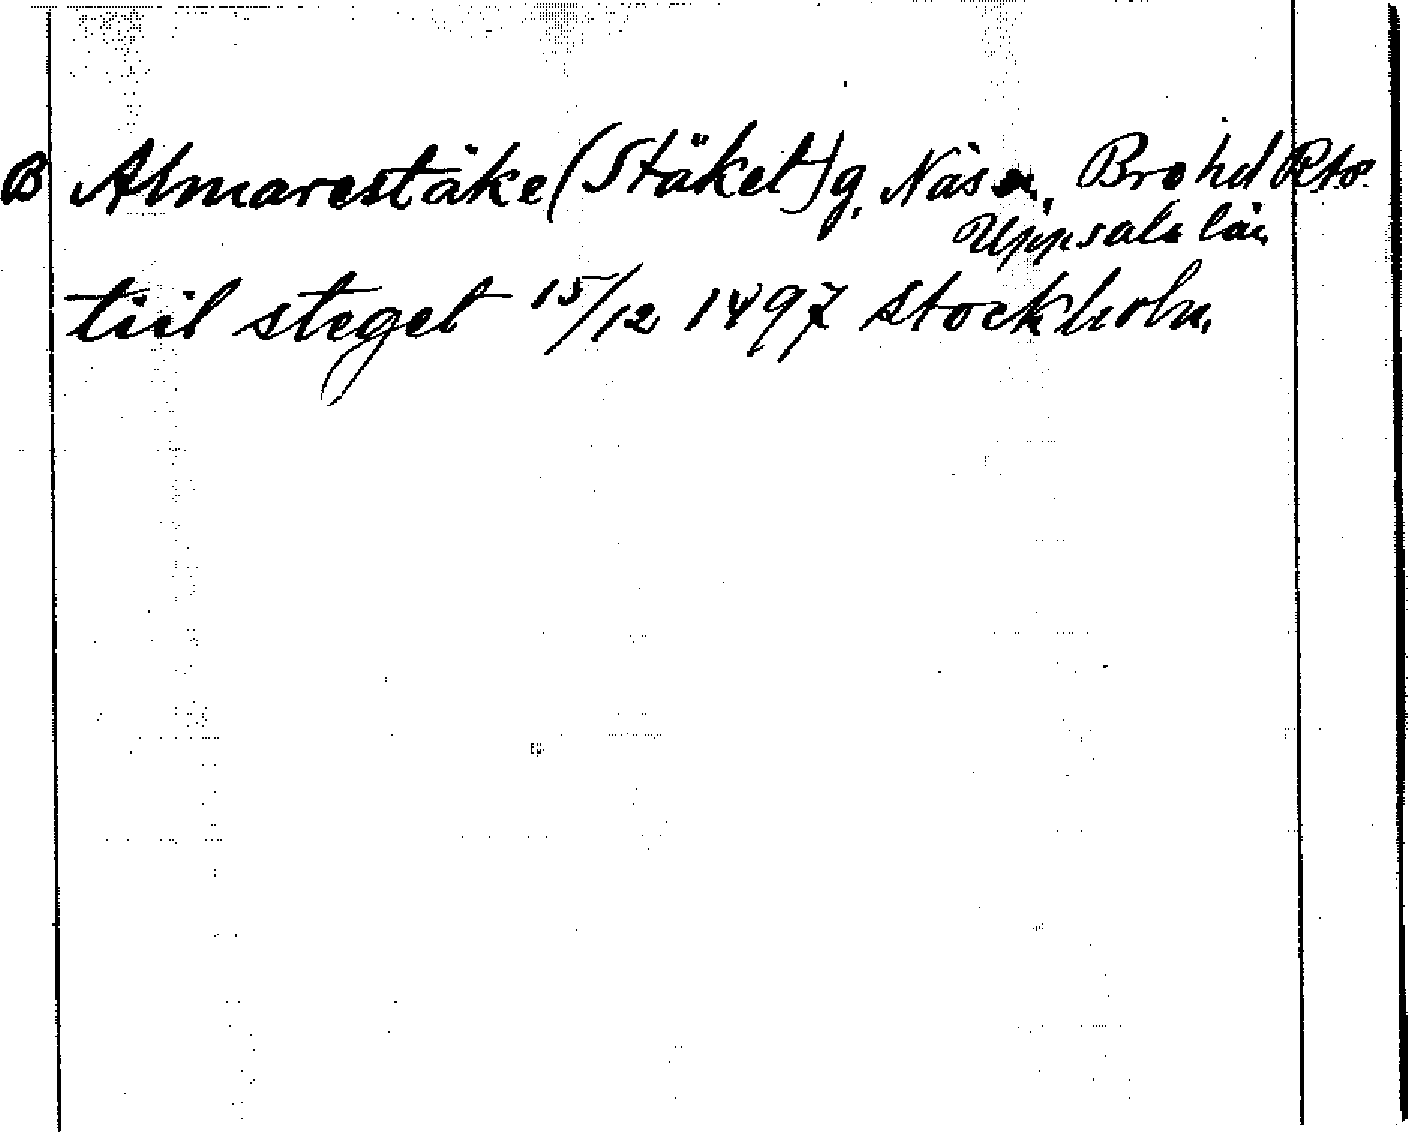 B Almarestäke (Stäket) g, Näs sn, Bro hd Rto.
Uppsala län
tiil steget 15/12 1497 Stockholm.